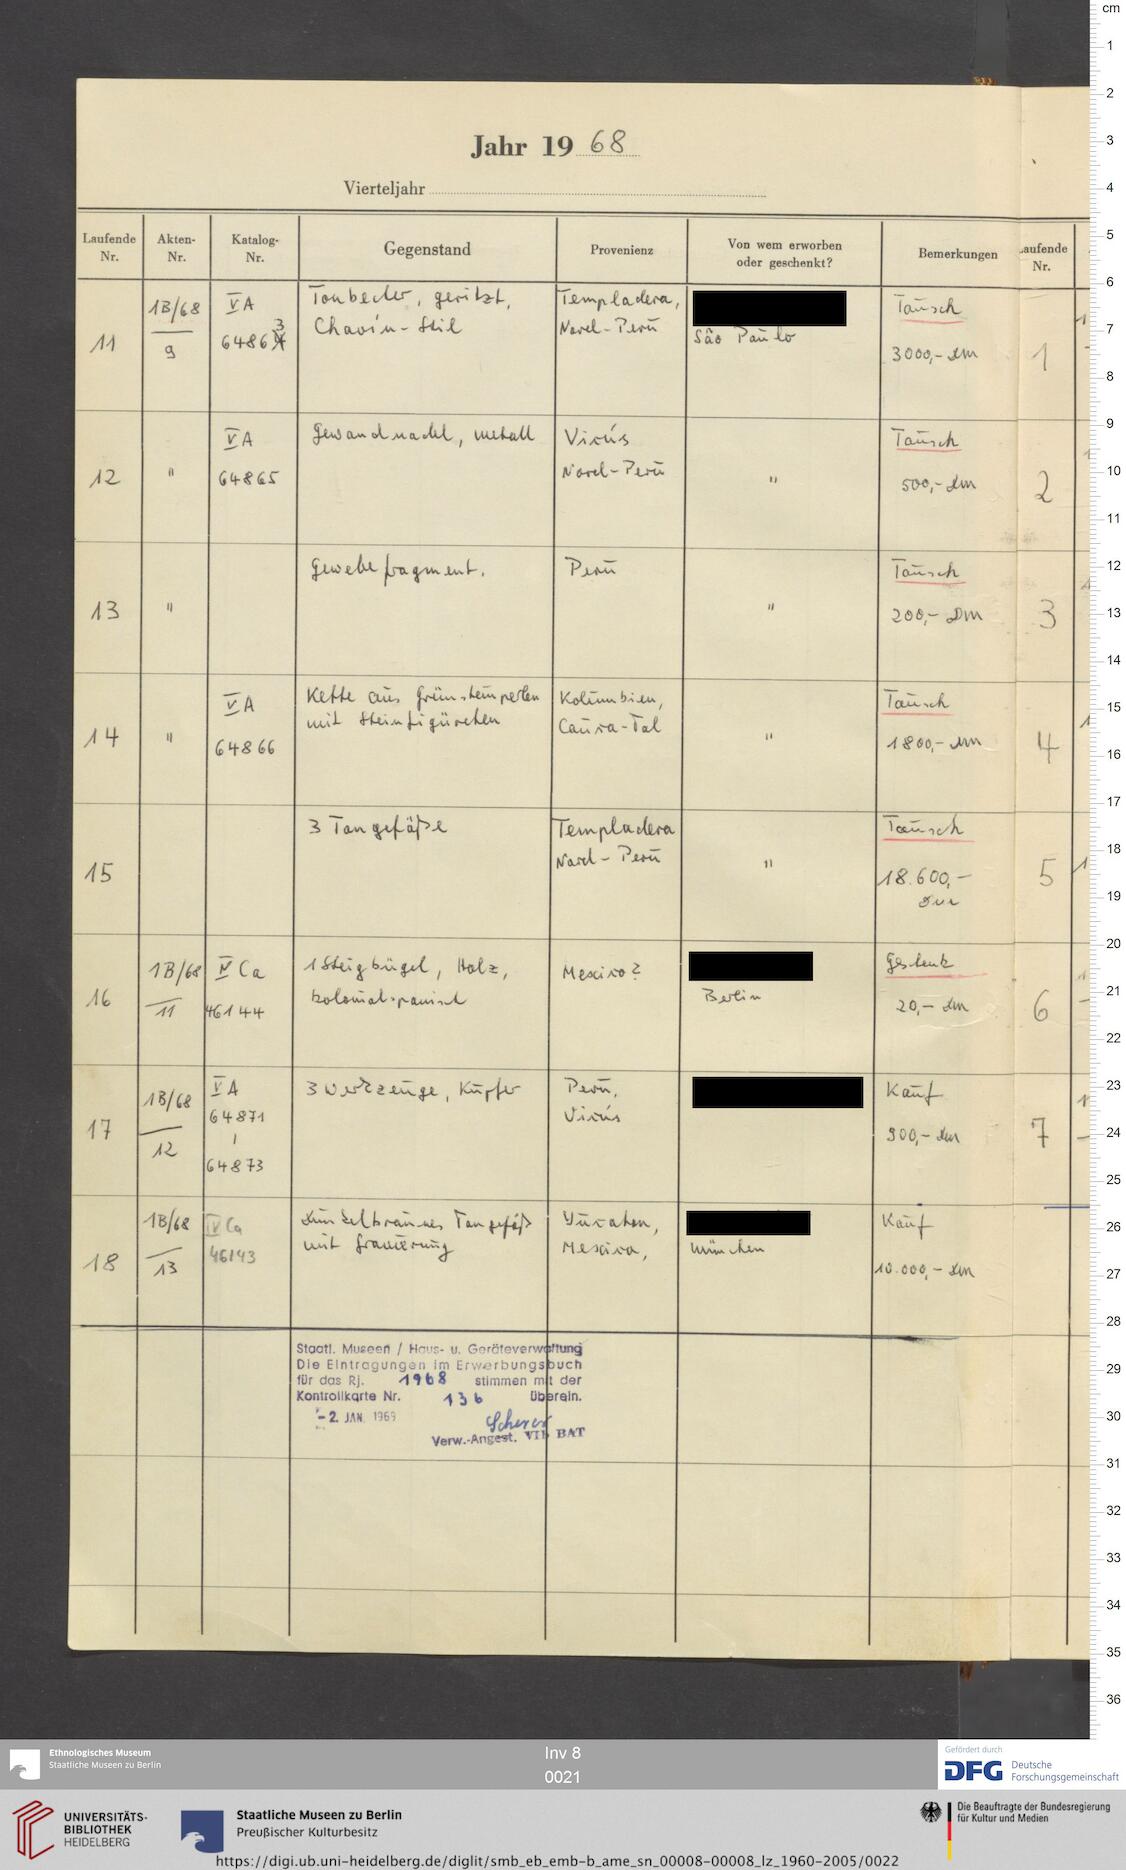 Jahr 19 68
Vierteljahr
Laufende Nr.
Akten-Nr.
Katalog-Nr.
Gegenstand
Provenienz
Von wem erworben oder geschenkt?
Bemerkungen
Laufende Nr.
11
1B/68
9
V A
64863
Tonbecher, geritzt,
Chavín-Stil
Templadera,
Nord-Perú
São Paulo
Tausch
3000,- DM
1
12
"
V A
64865
Gewandnadel, Metall
Vicús
Nord-Perú
"
Tausch
500,- DM
2
13
"
Gewebefragment.
Perú
"
Tausch
200,- DM
3
14
"
V A
64866
Kette aus Grünsteinperlen
mit Steinfigürchen
Kolumbien,
Cauca-Tal
"
Tausch
1800,- DM
4
15
3 Tongefäße
Templadera
Nord-Perú
"
Tausch
18.600,-
DM
5
16
1B/68
11
IV Ca
46144
1 Steigbügel, Holz,
kolonialspanisch
Mexico?
Berlin
Geschenk
20,- DM
6
17
1B/68
12
V A
64871
64873
3 Werkzeuge, Kupfer
Perú,
Vicús
Kauf
900,- DM
7
18
1B/68
13
IV Ca
46143
Dunkelbraunes Tongefäß
mit Gravierung
Yucatan,
Mexico,
München
Kauf
10.000,- DM
Staatl. Museen / Haus- u. Geräteverwaltung
Die Eintragungen im Erwerbungsbuch
für das Rj. 1968 stimmen mit der
Kontrollkarte Nr. 136 überein.
-2. JAN. 1969
Scherer
Verw.-Angest. VIb BAT
cm
1
2
3
4
5
6
7
8
9
10
11
12
13
14
15
16
17
18
19
20
21
22
23
24
25
26
27
28
29
30
31
32
33
34
35
36
Ethnologisches Museum
Staatliche Museen zu Berlin
Inv 8
0021
Gefördert durch
DFG Deutsche
Forschungsgemeinschaft
UNIVERSITÄTS-
BIBLIOTHEK
HEIDELBERG
Staatliche Museen zu Berlin
Preußischer Kulturbesitz
Die Beauftragte der Bundesregierung
für Kultur und Medien
https://digi.ub.uni-heidelberg.de/diglit/smb_eb_emb-b_ame_sn_00008-00008_lz_1960-2005/0022